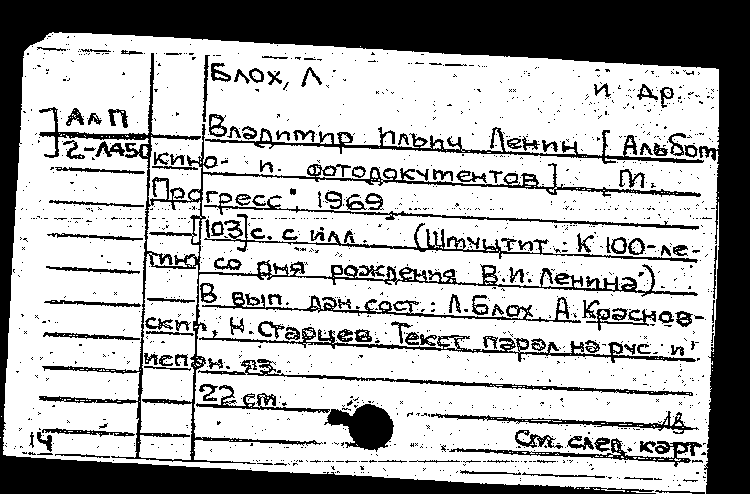 Блох, Л и др.
Ал П
2-Л450
Владимир Ильич Ленин [Альбом
кино- и фотодокументов]. М.
"Прогресс", 1969.
[103]с. с илл. (Шмуцтит.: К 100-ле-
тию со дня рождения В.И. Ленина).
В вып. дан. сост.: Л. Блох, А. Краснов-
ский, Н. Старцев. Текст парал. на рус. и
испан. яз.
22 см.
18
См. след. карт.
14